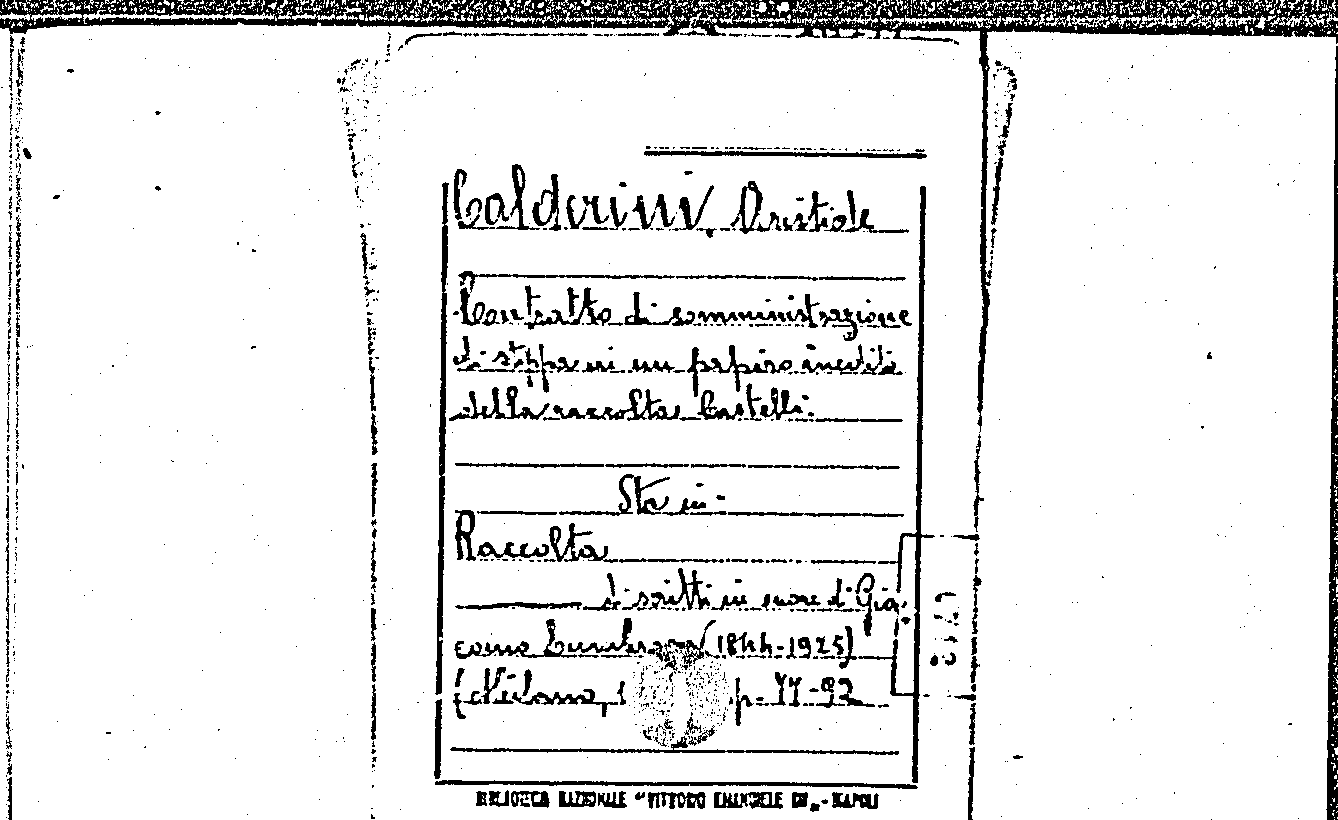 Calderini, Aristide
Contratto di somministrazione
di stoppa in un papiro inedito
della raccolta Castelli.
Sta in:
Raccolta
di scritti in onore di Gia-
como Lumbroso (1844-1925)
(Milano, p. 77-92
BIBLIOTECA NAZIONALE "VITTORIO EMANUELE III" - NAPOLI